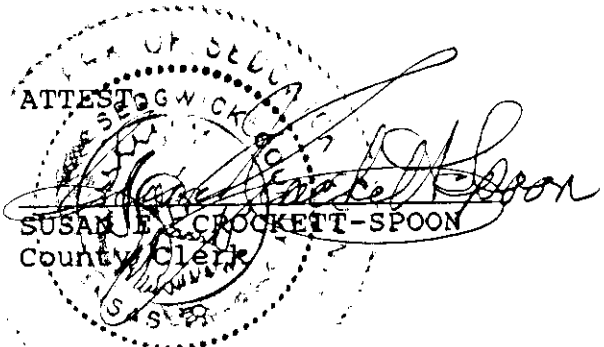 ATTEST:
Susan E. Crockett-Spoon
SUSAN E. CROCKETT-SPOON
County Clerk
OF SEDGWICK
SEDGWICK CO